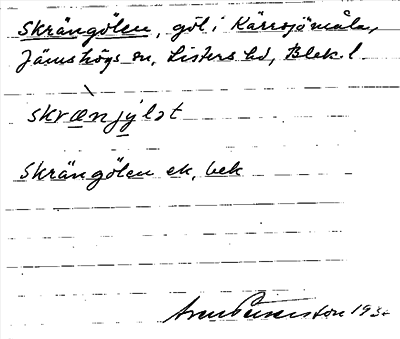 Skrängölen, göl i Kärrsjömåla,
Jämshögs sn, Listers hd, Blek. l.
skrænjỳlət
Skrängölen ek, bek